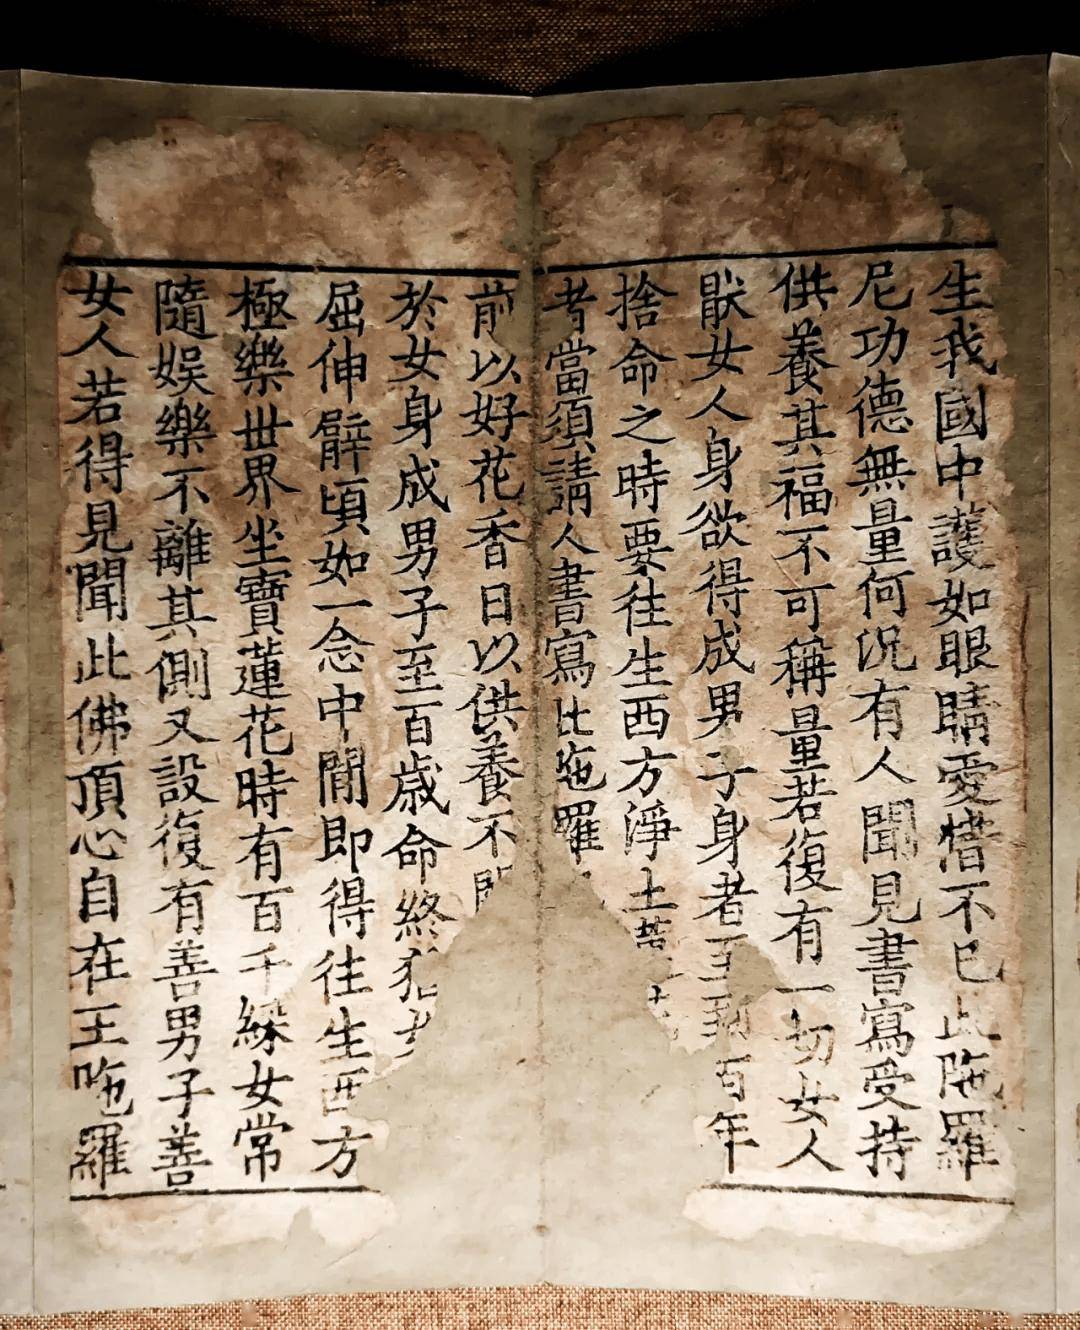 生我國中護如眼睛愛惜不已此陁羅
尼功德無量何況有人聞見書寫受持
供養其福不可稱量若復有一切女人
猒女人身欲得成男子身者至到百年
捨命之時要往生西方淨土蓮
者當須請人書寫此陁羅
前以好花香日以供養不
於女身成男子至百歲命終猶
屈伸臂頃如一念中間即得往生西方
極樂世界坐寶蓮花時有百千婇女常
隨娛樂不離其側又設復有善男子善
女人若得見聞此佛頂心自在王陁羅